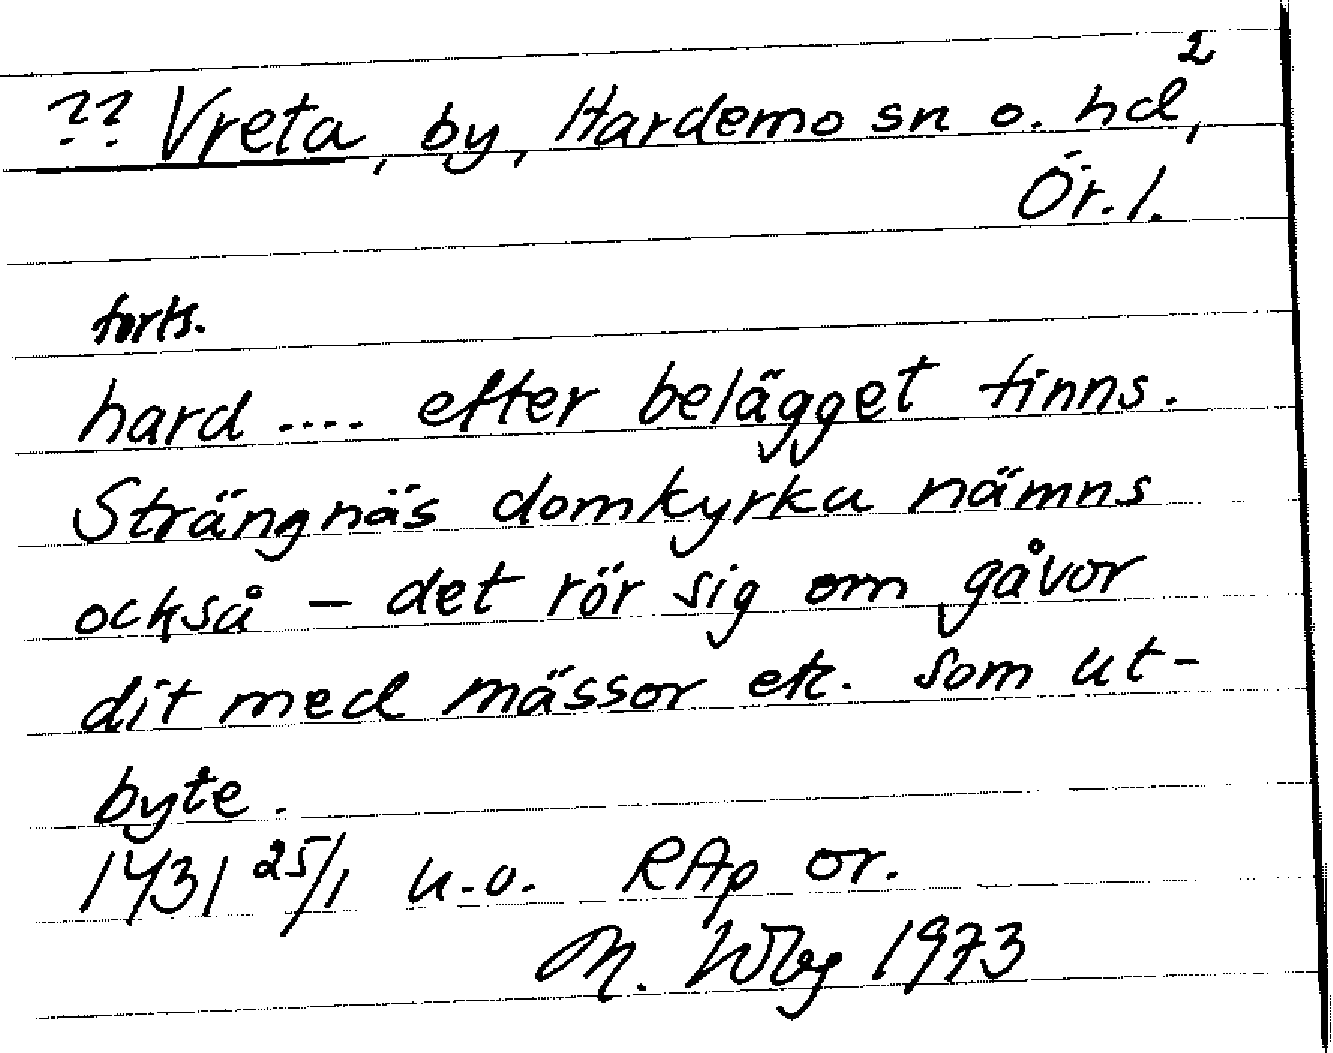 ?? Vreta, by, Hardemo sn o. hd,²
Ör. l.
forts.
hard .... efter belägget finns.
Strängnäs domkyrka nämns
också – det rör sig om gåvor
dit med mässor etc. som ut-
byte.
1431 25/1 u.o. RAp or.
M. Wbg 1973